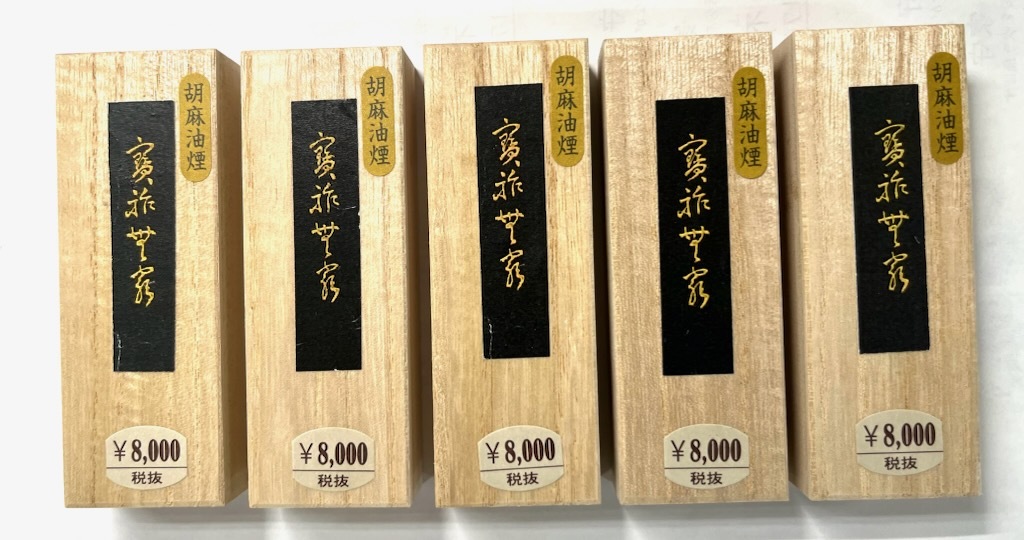 胡麻油煙
寶祚無窮
¥8,000
税抜
胡麻油煙
寶祚無窮
¥8,000
税抜
胡麻油煙
寶祚無窮
¥8,000
税抜
胡麻油煙
寶祚無窮
¥8,000
税抜
胡麻油煙
寶祚無窮
¥8,000
税抜